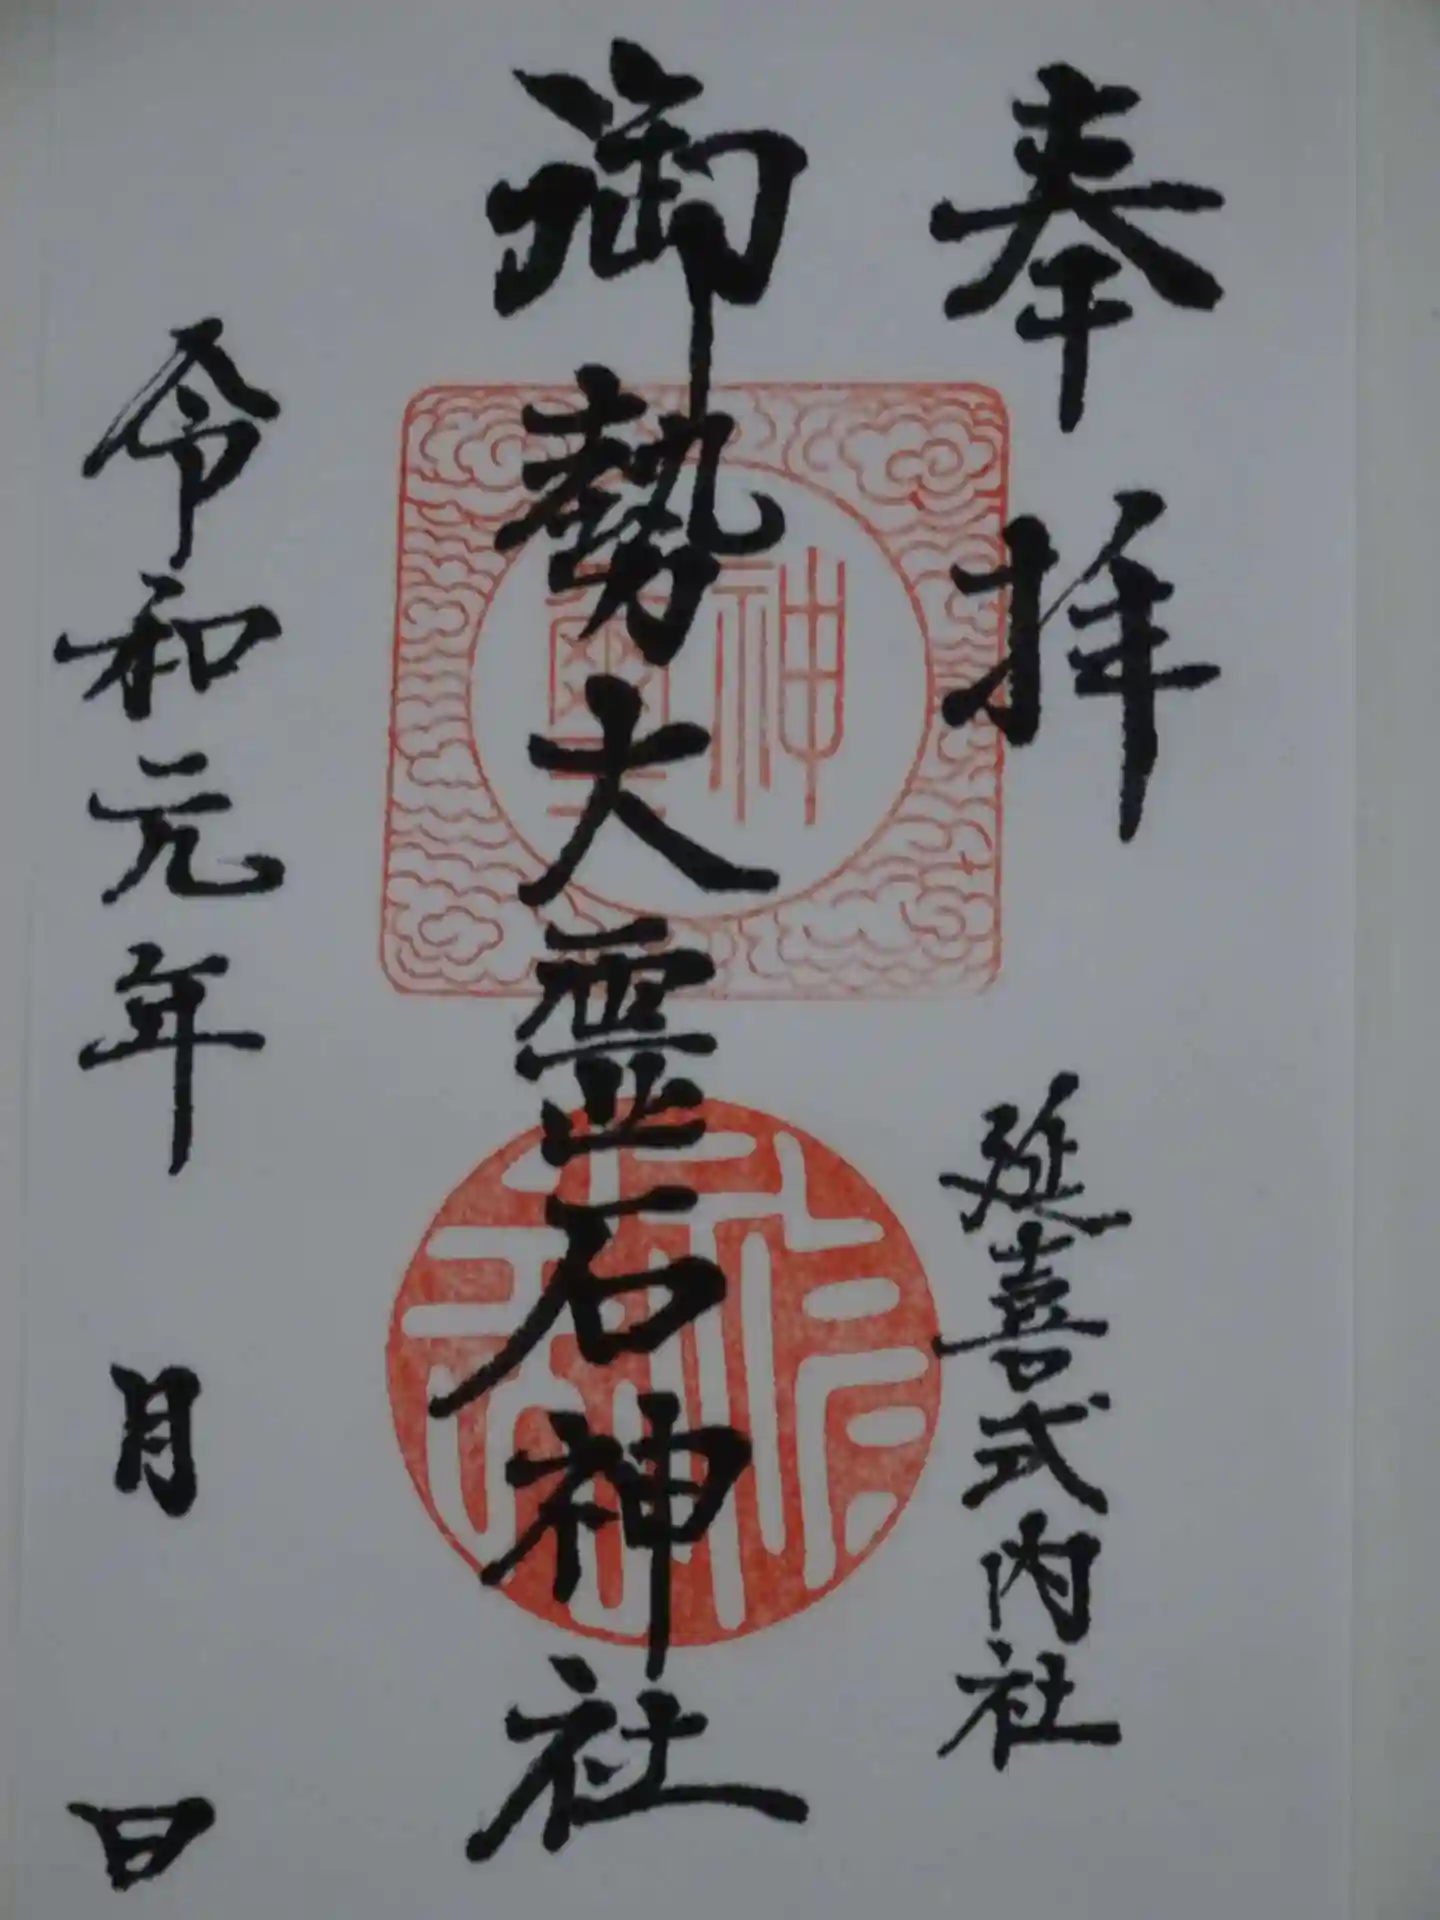 奉拝
延喜式内社
御勢大霊石神社
令和元年　月　日